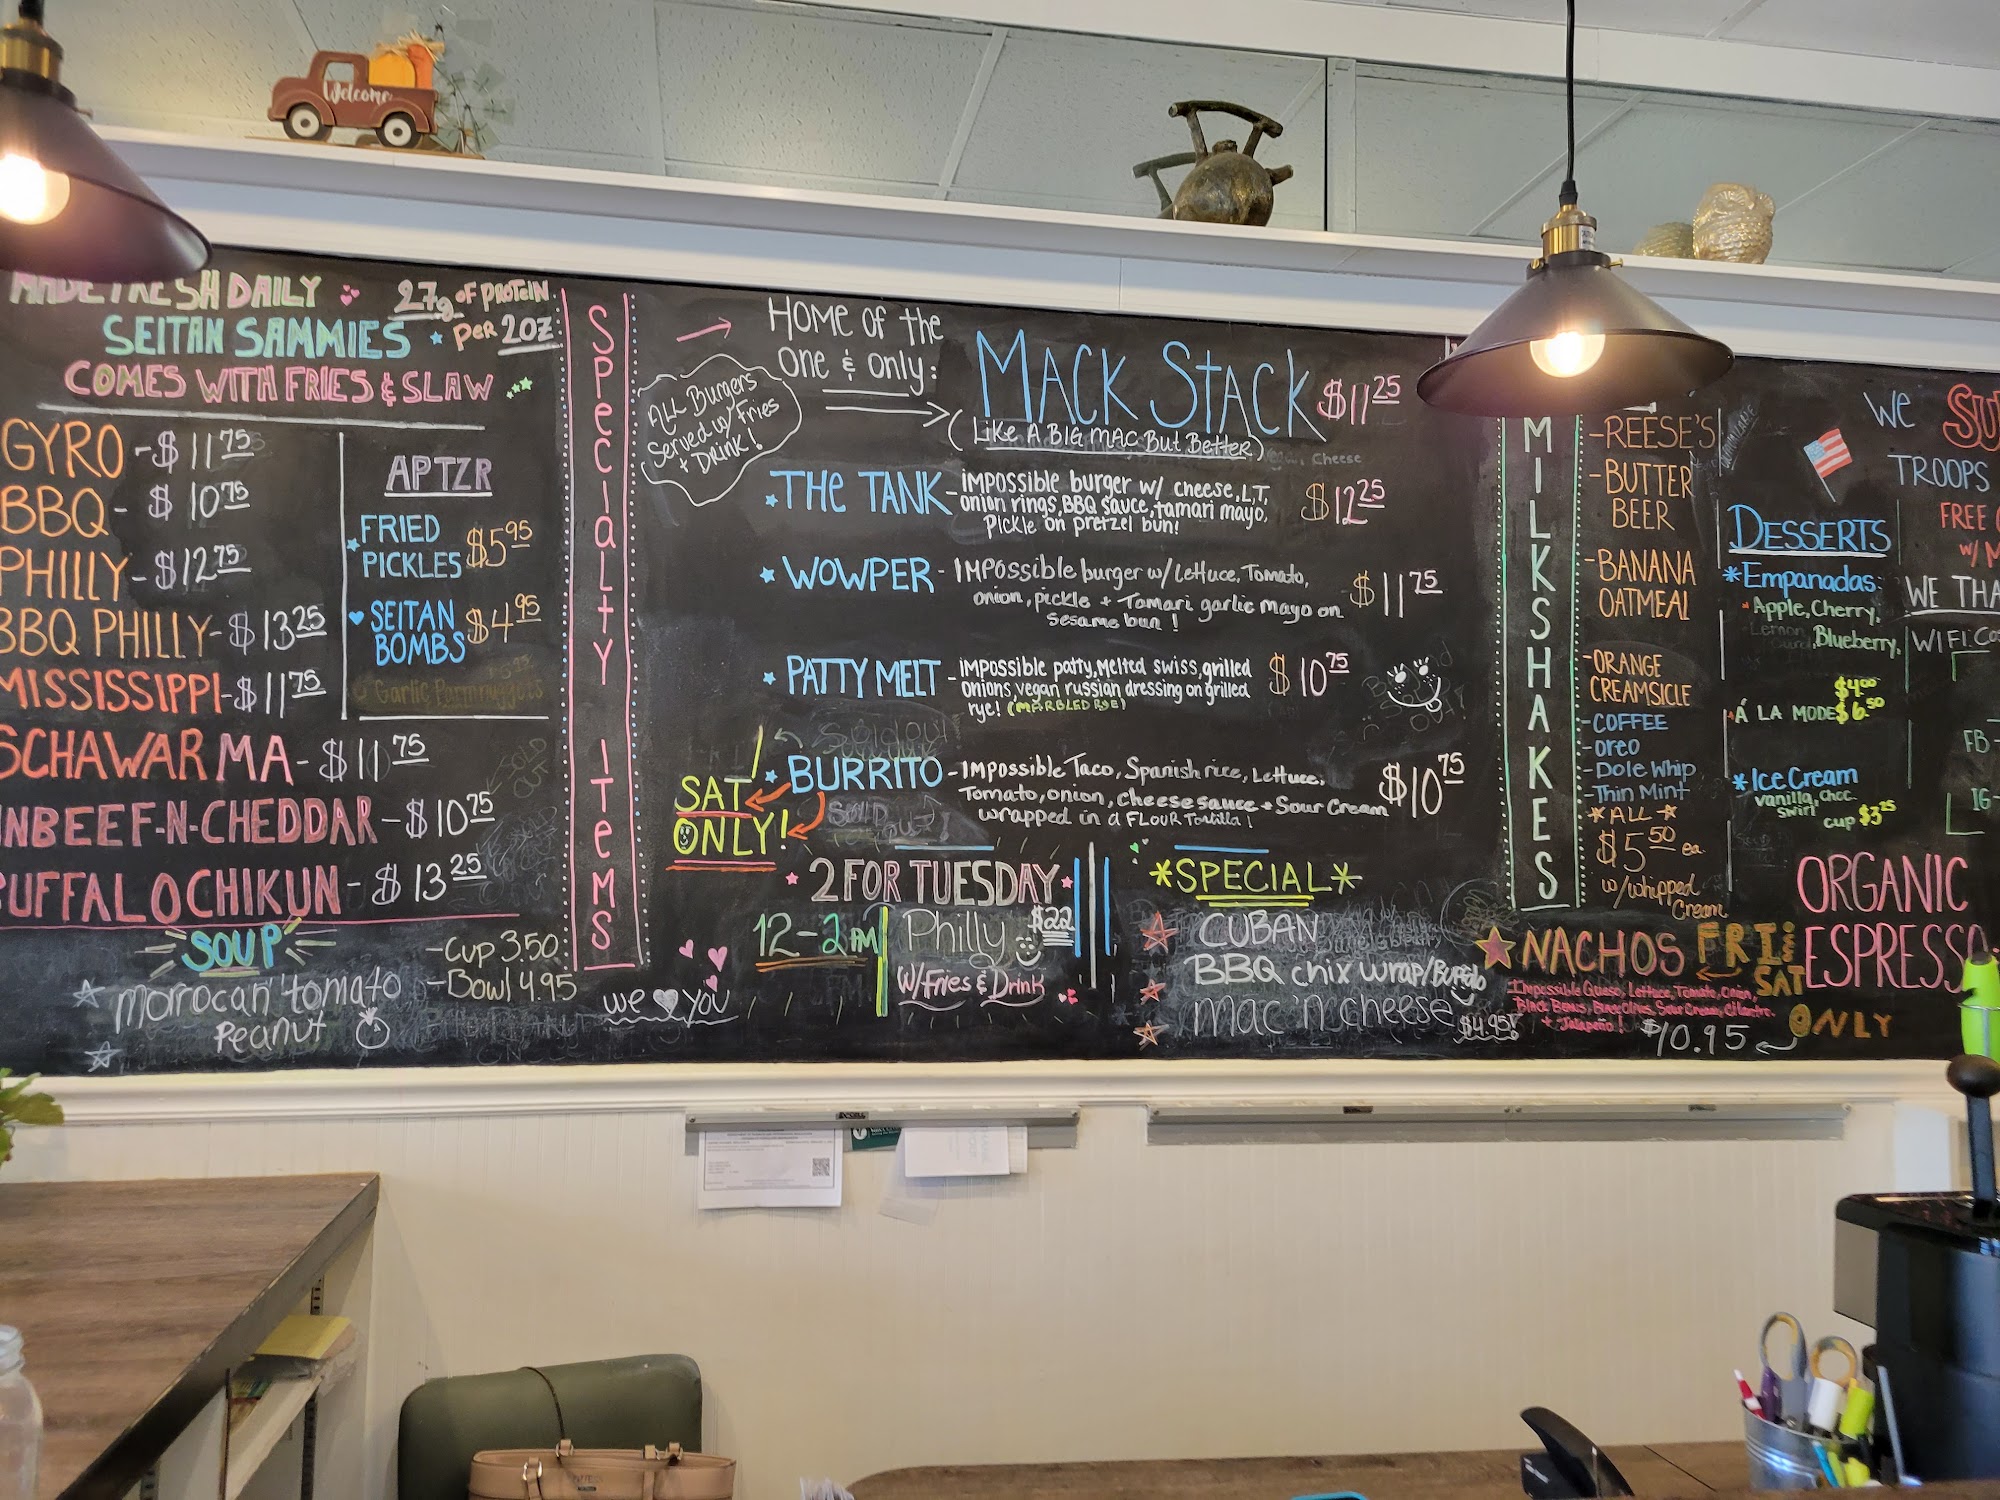 Welcome
MADE FRESH DAILY
27g OF PROTEIN
PER 2OZ
SEITAN SAMMIES
COMES WITH FRIES & SLAW
GYRO - $11.75
BBQ - $10.75
PHILLY - $12.75
BBQ PHILLY - $13.25
MISSISSIPPI - $11.75
SCHAWARMA - $11.75
NBEEF-N-CHEDDAR - $10.75
BUFFALO CHIKUN - $13.25
APTZR
FRIED
PICKLES $5.95
SEITAN
BOMBS $4.95
SOUP
morrocan tomato
Peanut
-Cup 3.50
-Bowl 4.95
SPecialty ITeMS
we YOU
ALL Burgers
Served w/ Fries
+ Drink!
HOME OF the
One & Only:
MACK STACK $11.25
(Like A BIG MAC But Better)
THE TANK - impossible burger w/ cheese, L,T,
onion rings, BBQ sauce, tamari mayo,
Pickle on pretzel bun!
$12.25
WOWPER - IMPossible burger w/ Lettuce, Tomato,
onion, pickle + Tamari garlic mayo on
sesame bun!
$11.75
PATTY MELT - impossible patty, melted swiss, grilled
onions, vegan russian dressing on grilled
rye! (MARBLED RYE)
$10.75
SAT
ONLY!
BURRITO - IMPossible Taco, Spanish rice, Lettuce,
Tomato, onion, cheese sauce + Sour Cream
wrapped in a FLOUR Tortilla!
$10.75
2 FOR TUESDAY
12-2PM
Philly $22
W/Fries & Drink
*SPECIAL*
CUBAN
BBQ chix wrap/Buffalo
mac 'n cheese $4.95
MILKSHAKES
-REESE'S
-BUTTER
BEER
-BANANA
OATMEAL
-ORANGE
CREAMSICLE
-COFFEE
-oreo
-Dole Whip
-Thin Mint
*ALL*
$5.50 ea.
w/whipped
Cream
DESSERTS
*Empanadas:
Apple, Cherry,
Blueberry,
$4.00
Á LA MODE $6.50
*Ice Cream
vanilla, choc
swirl
cup $3.25
We SU
TROOPS
FREE
w/ M
WE THA
WIFI: Co
FB-
IG-
ORGANIC
ESPRESSO
NACHOS FRI
SAT
ONLY
Impossible Queso, Lettuce, Tomato, Onion,
Black Beans, Black Olives, Sour Cream, Cilantro
+ Jalapeño!
$10.95